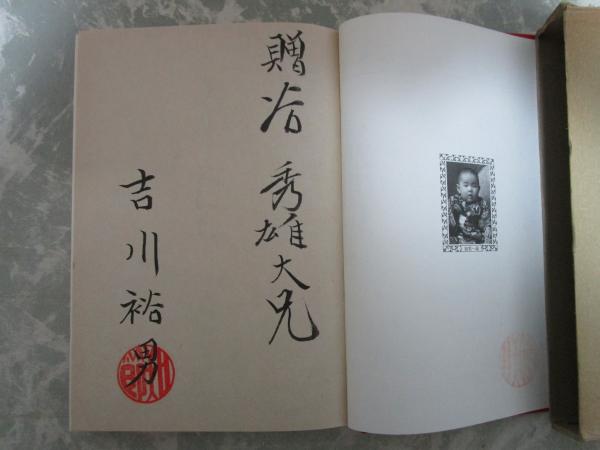 贈 秀雄大兄
吉川裕男